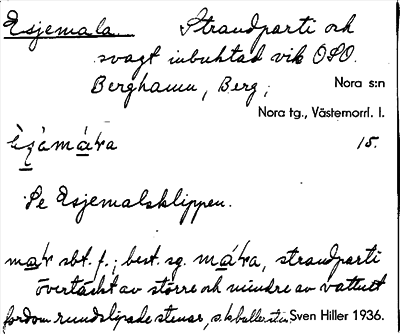 Esjemala. Strandparti och
svagt inbuktad vik OSO.
Berghamn, Berg; Nora s:n
Nora tg., Västernorrl. l.
15.
Se Esjemalsklippen.
mar sbt. f.; best. sg. strandparti
övertäckt av större och mindre av vattnet
fordom rundslipade stenar, s.k. Sven Hiller 1936.